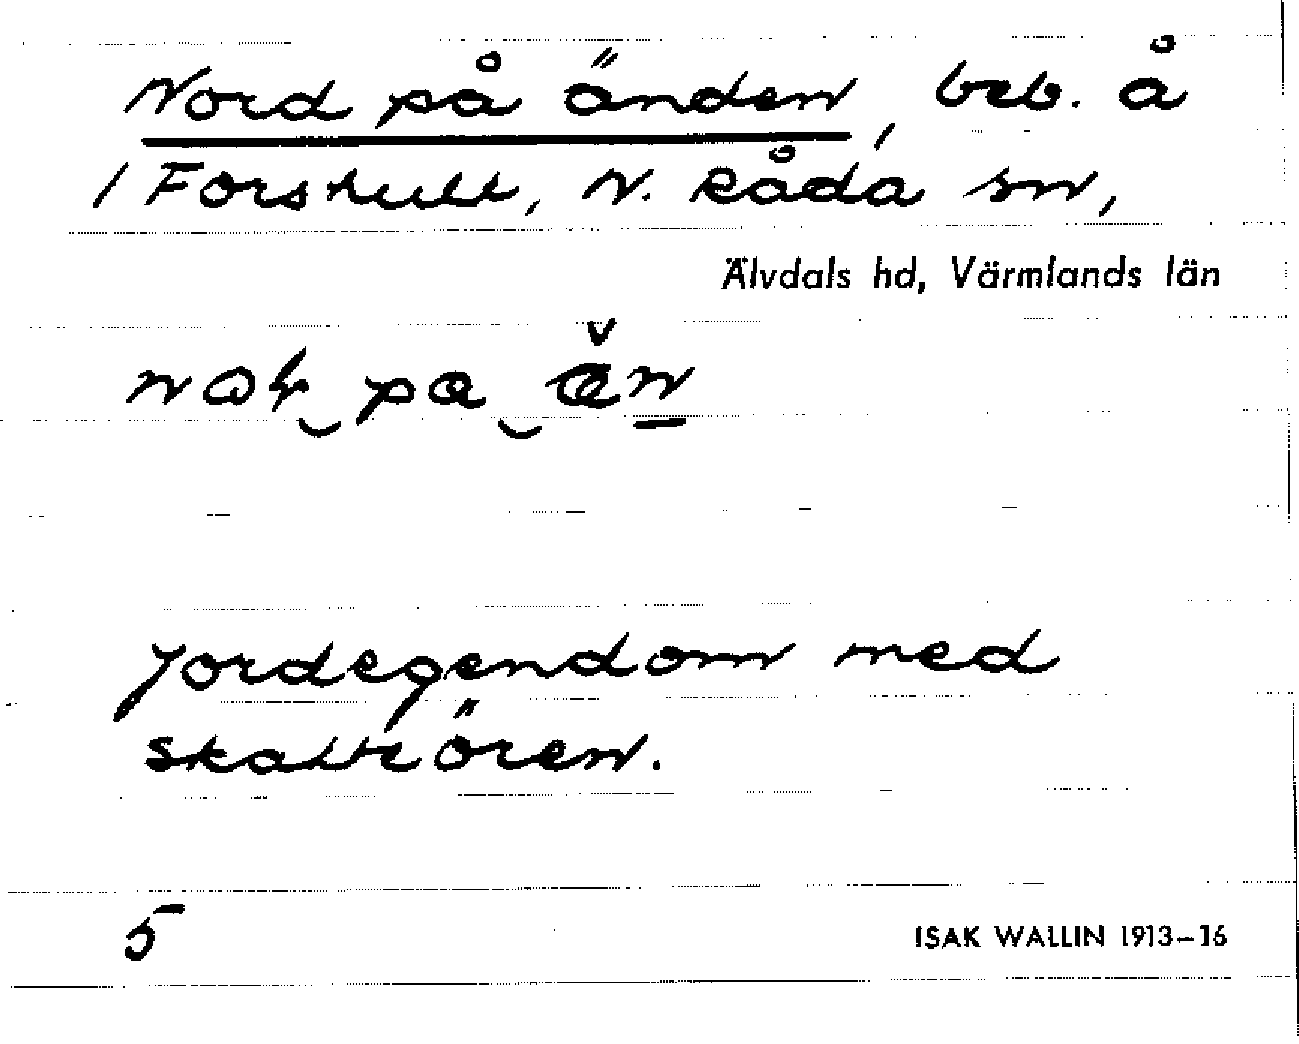 Nord på änden, beb. å
/ Forshult, N. Råda sn,
Älvdals hd, Värmlands län
jordegendom med
skatteören.
5
ISAK WALLIN 1913–16